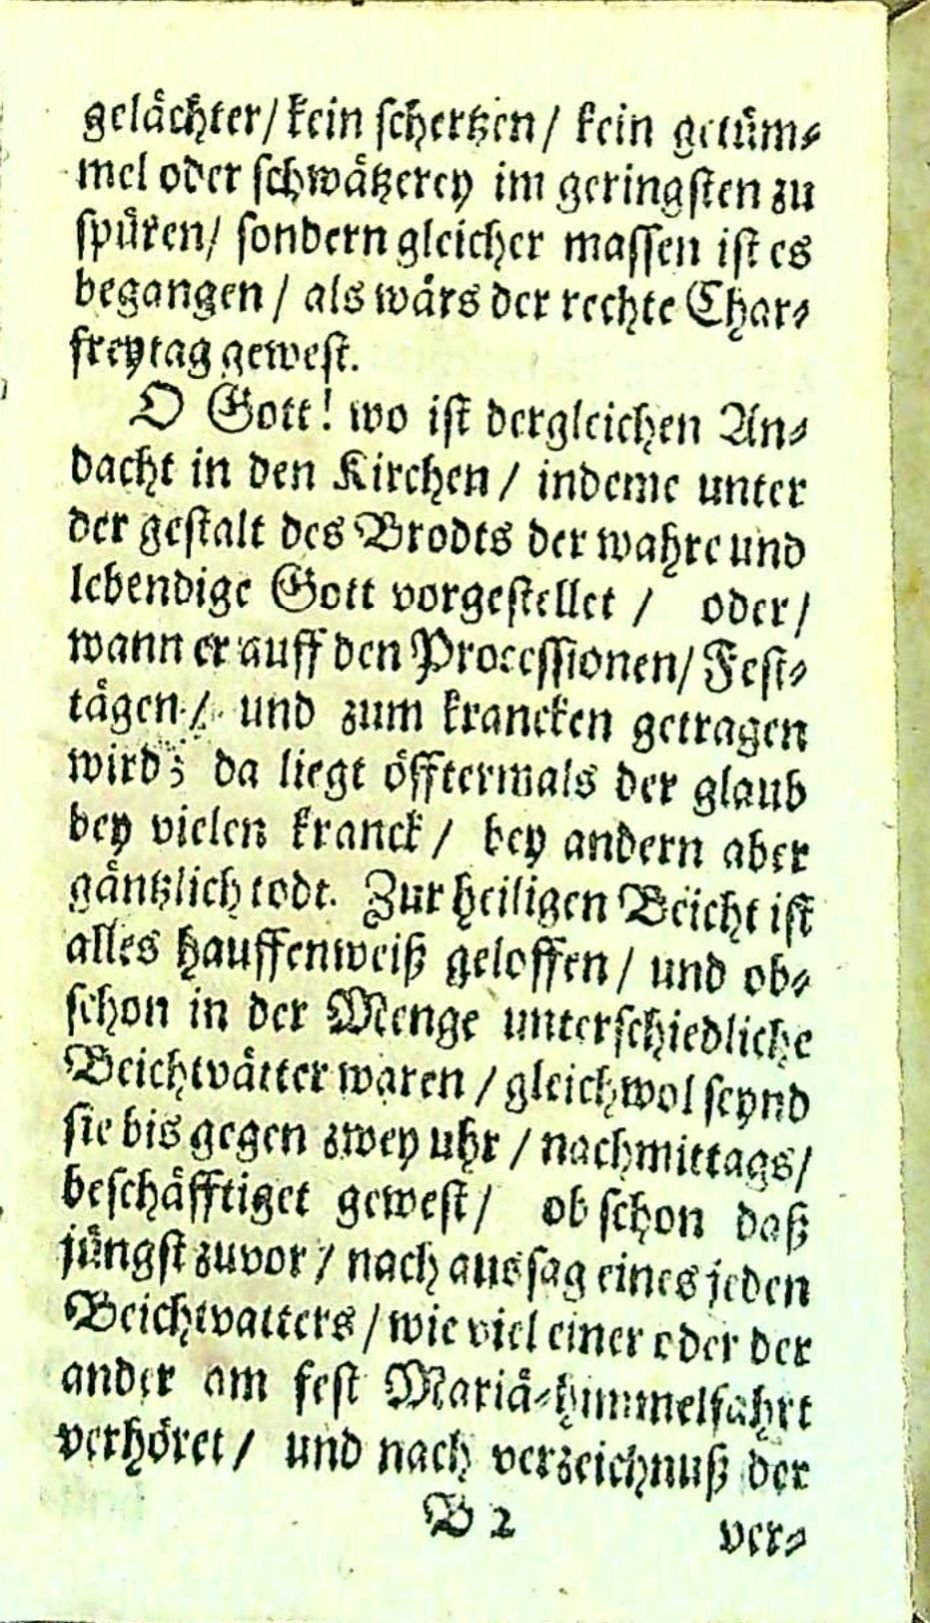 gelächter/ kein schertzen/ kein getüm⸗
mel oder schwätzerey im geringsten zu
spüren/ sondern gleicher massen ist es
begangen / als wärs der rechte Char⸗
freytag gewest.
O Gott! wo ist dergleichen An⸗
dacht in den Kirchen / indeme unter
der gestalt des Brodts der wahre und
lebendige Gott vorgestellet / oder/
wann er auff den Processionen/ Fest⸗
tägen / und zum krancken getragen
wird; da liegt öfftermals der glaub
bey vielen kranck / bey andern aber
gäntzlich todt. Zur heiligen Beicht ist
alles hauffenweiß geloffen / und ob⸗
schon in der Menge unterschiedliche
Beichtvätter waren / gleichwol seynd
sie bis gegen zwey uhr / nachmittags/
beschäfftiget gewest/ ob schon daß
jüngst zuvor / nach aussag eines jeden
Beichtvatters / wie viel einer oder der
ander am fest Mariä⸗himmelfahrt
verhöret/ und nach verzeichnuß der
B 2 ver⸗